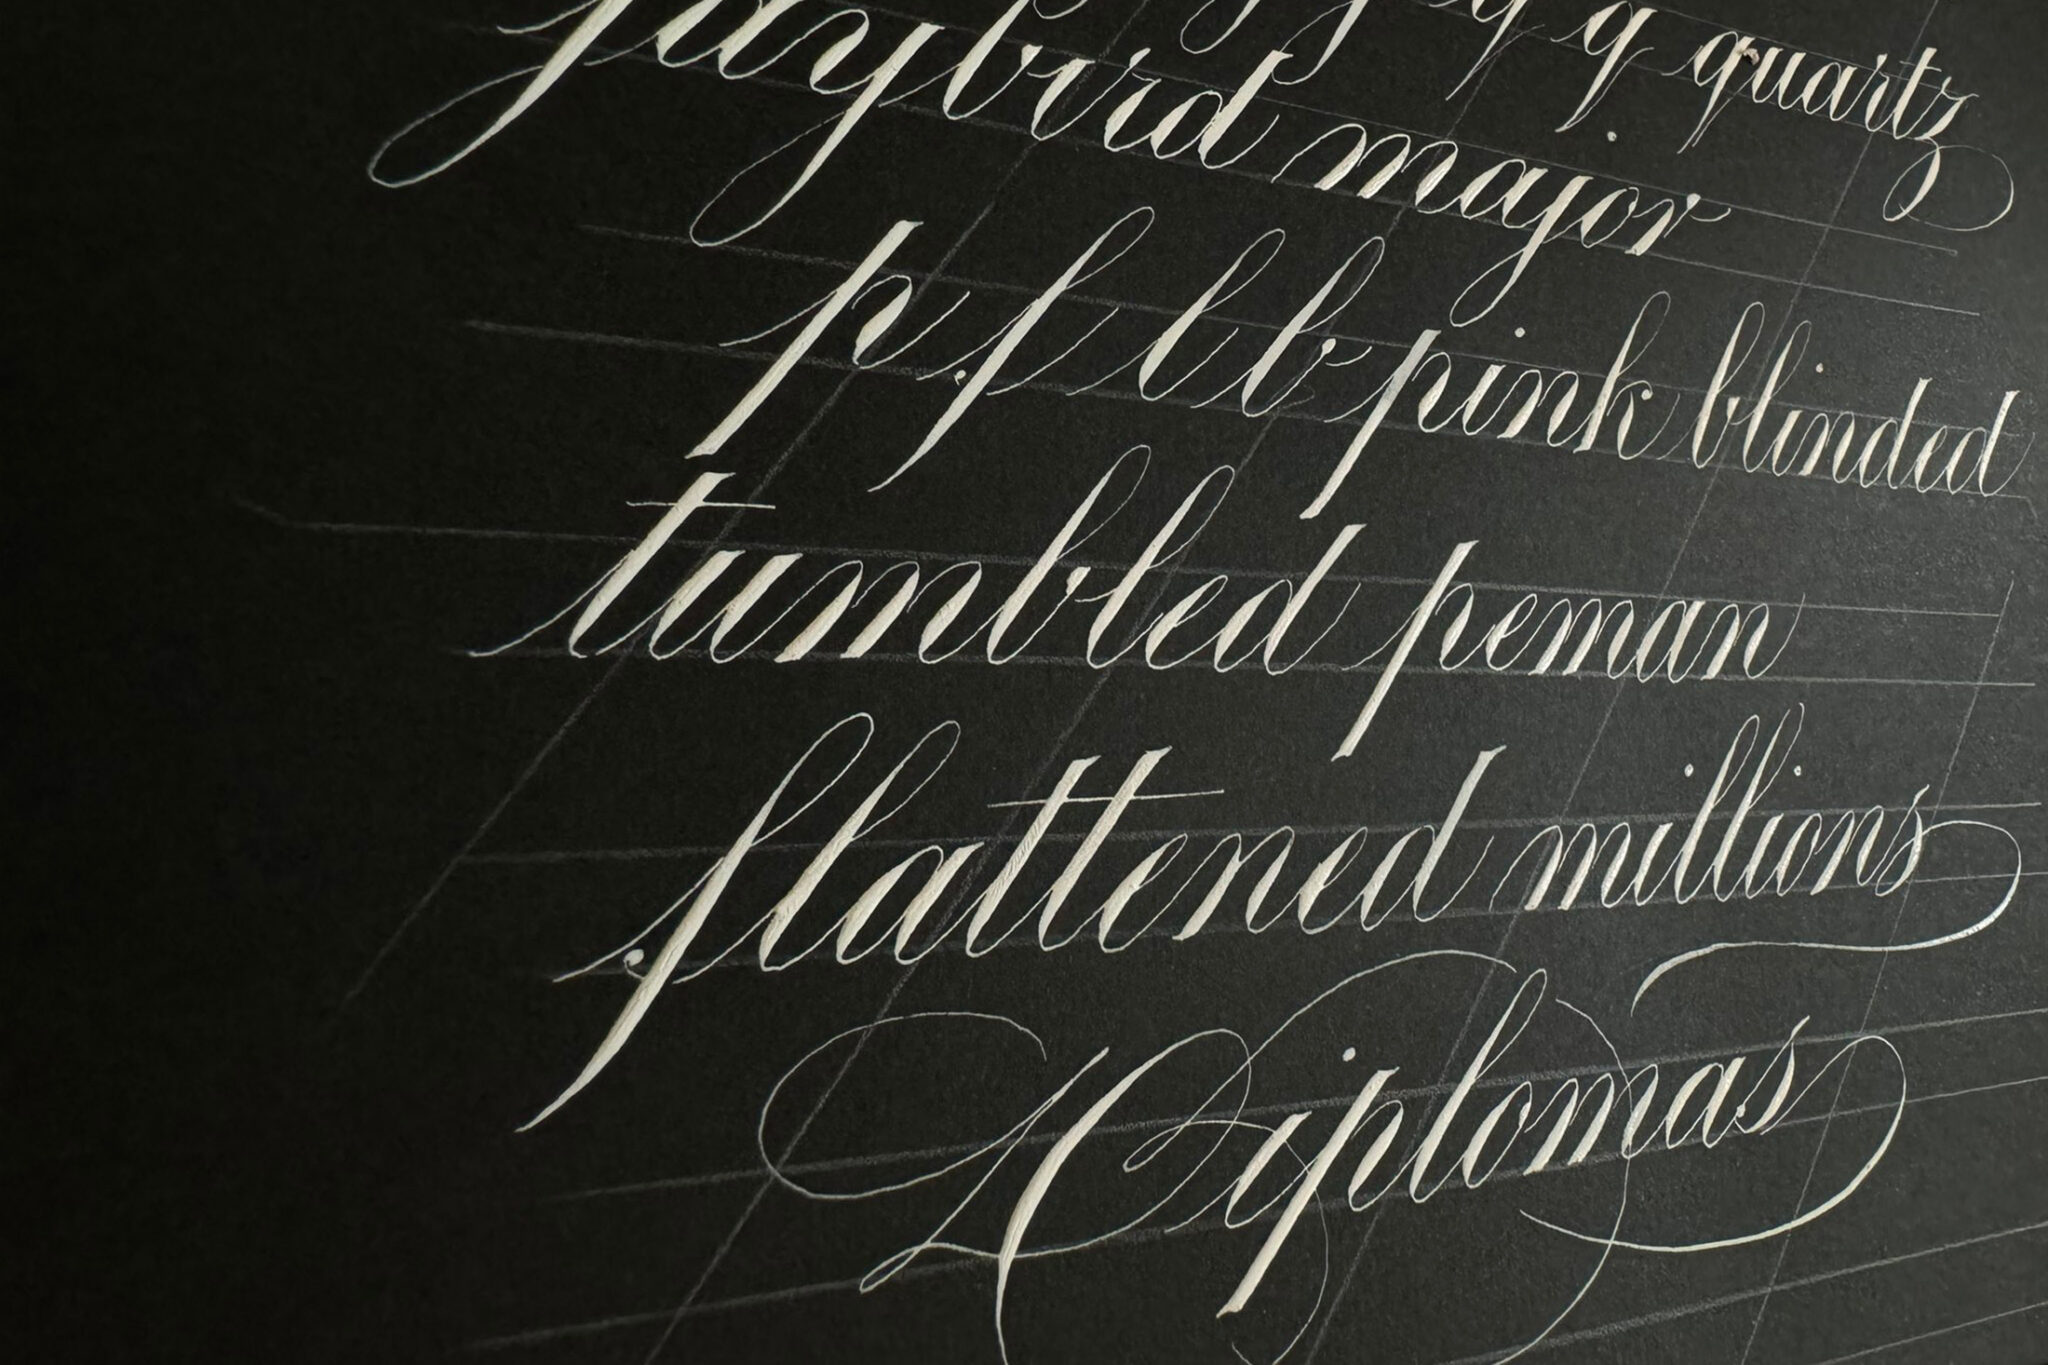 q q quartz
jaybird major
p f l b pink blinded
tumbled peman
flattened millions
Diplomas